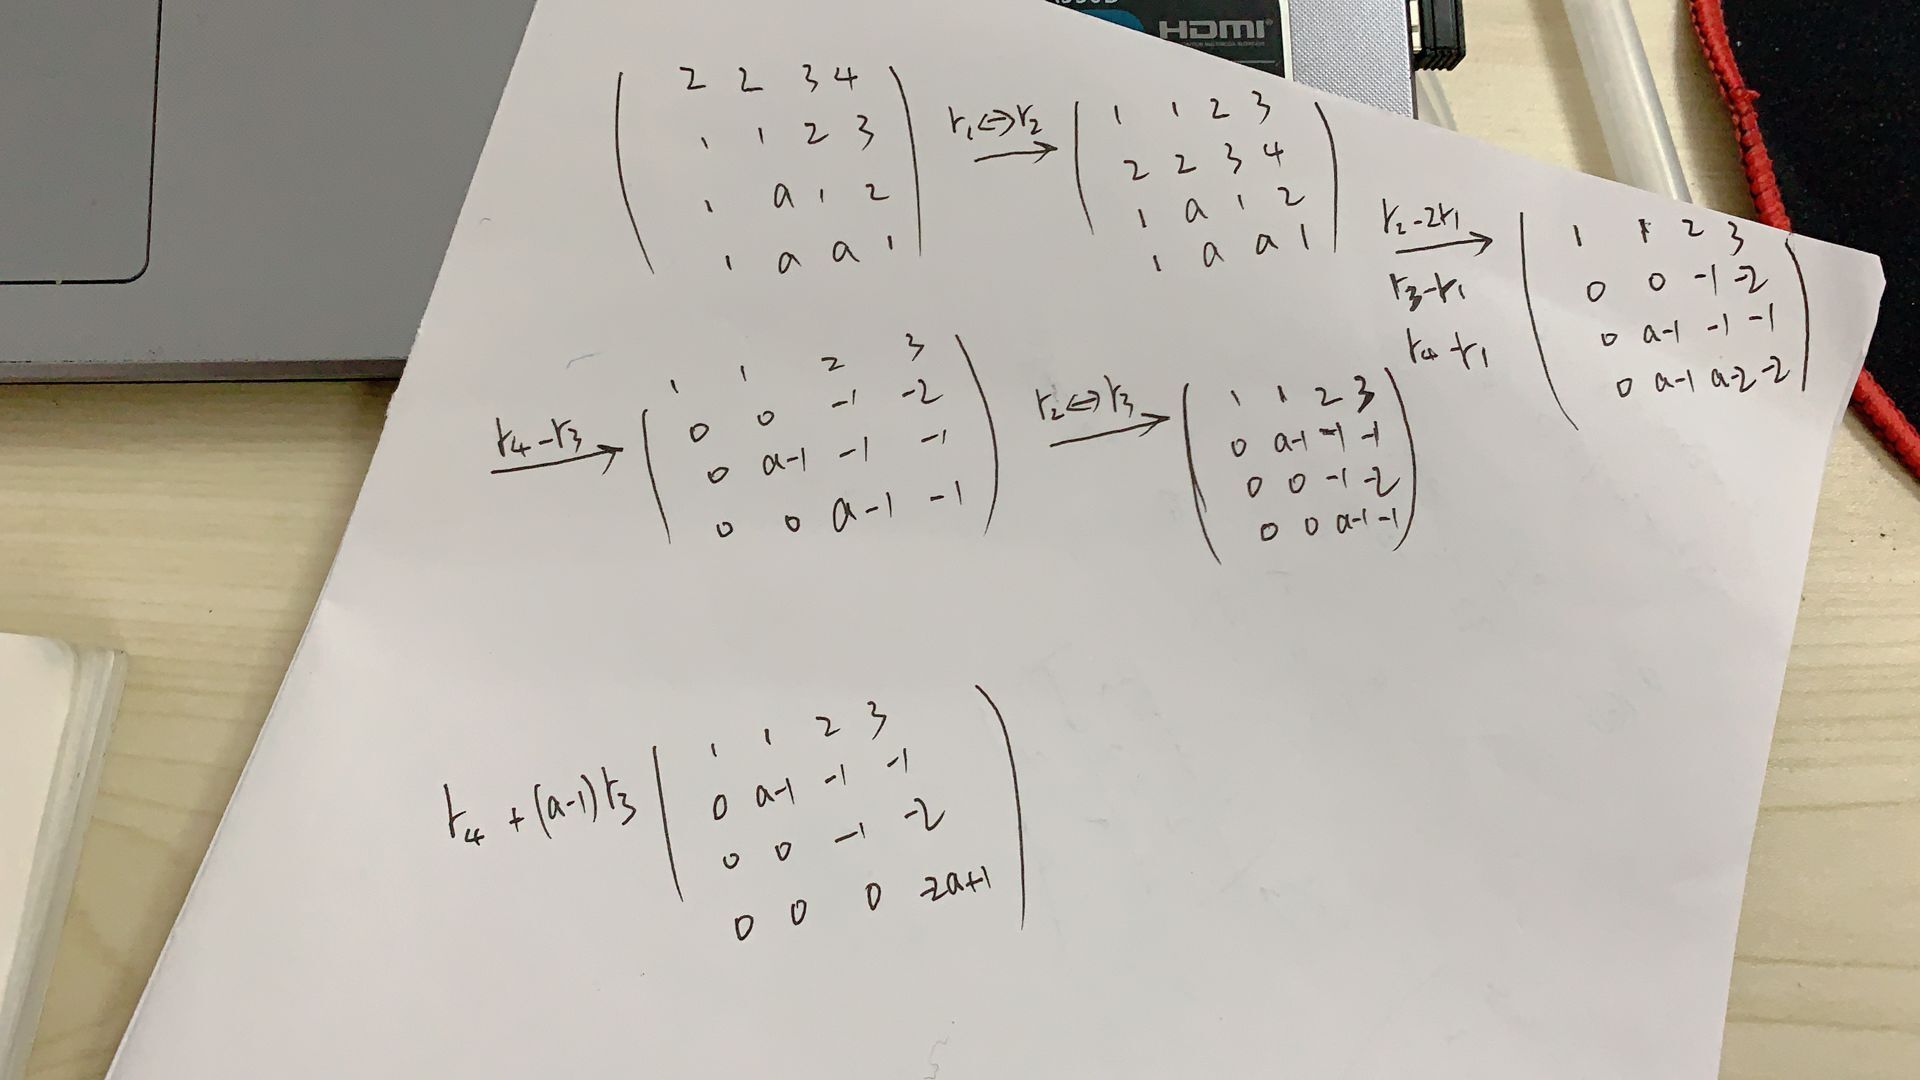 HDMI
2 2 3 4
1 1 2 3
1 a 1 2
1 a a 1
r₁↔r₂
1 1 2 3
2 2 3 4
1 a 1 2
1 a a 1
r₂-2r₁
r₃-r₁
r₄-r₁
1 1 2 3
0 0 -1 -2
0 a-1 -1 -1
0 a-1 a-2 -2
r₄-r₃
1 1 2 3
0 0 -1 -2
0 a-1 -1 -1
0 0 a-1 -1
r₂↔r₃
1 1 2 3
0 a-1 -1 -1
0 0 -1 -2
0 0 a-1 -1
r₄+(a-1)r₃
1 1 2 3
0 a-1 -1 -1
0 0 -1 -2
0 0 0 -2a+1